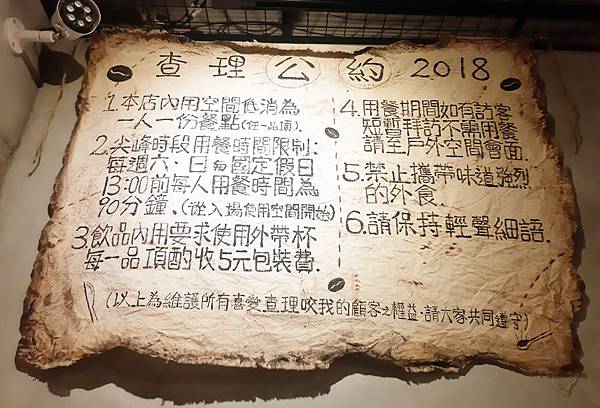 查理公約 2018
1.本店內用空間低消為
一人一份餐點(任一品項).
2.尖峰時段用餐時間限制:
每週六、日和國定假日
13:00前每人用餐時間為
90分鐘、(從入場使用空間開始)
3.飲品內用要求使用外帶杯
每一品項酌收5元包裝費.
4.用餐期間如有訪客
短暫拜訪不需用餐
請至戶外空間會面.
5.禁止攜帶味道強烈
的外食.
6.請保持輕聲細語.
(以上為維護所有喜愛查理咬我的顧客之權益,請大家共同遵守)